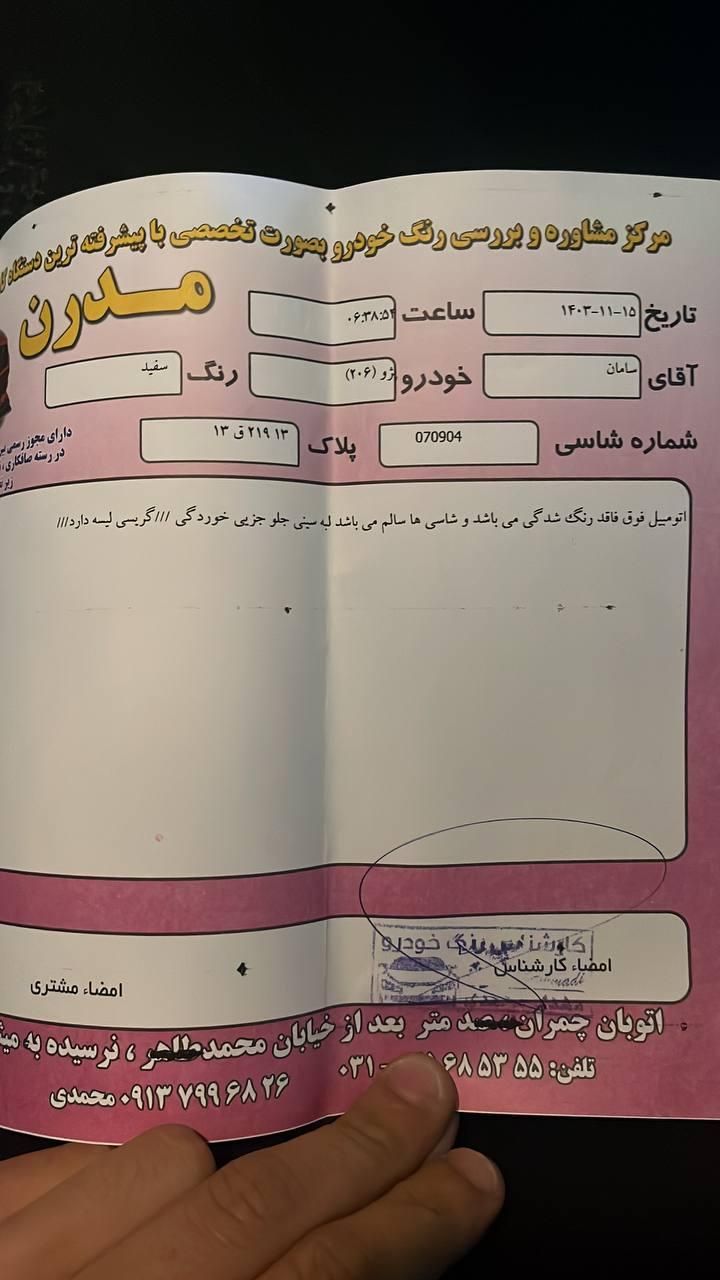 مرکز مشاوره و بررسی رنگ خودرو بصورت تخصصی با پیشرفته ترین دستگاه
مدرن
تاریخ ۱۴۰۳-۱۱-۱۵ ساعت ۰۶:۳۸:۵۴
آقای سامان خودرو پژو (۲۰۶) رنگ سفید
شماره شاسی 070904 پلاک ۱۳ ۲۱۹ ق ۱۳
دارای مجوز رسمی
در رسته صافکاری ،
اتومبیل فوق فاقد رنگ شدگی می باشد و شاسی ها سالم می باشد لبه سینی جلو جزیی خوردگی ///گریسی لیسه دارد///
کارشناس رنگ خودرو
امضاء کارشناس
امضاء مشتری
اتوبان چمران متر بعد از خیابان محمدطاهر ، نرسیده به
تلفن: ۵۵ ۵۳ ۶۸ ۰۳۱-
۰۹۱۳ ۷۹۹ ۶۸ ۲۶ محمدی